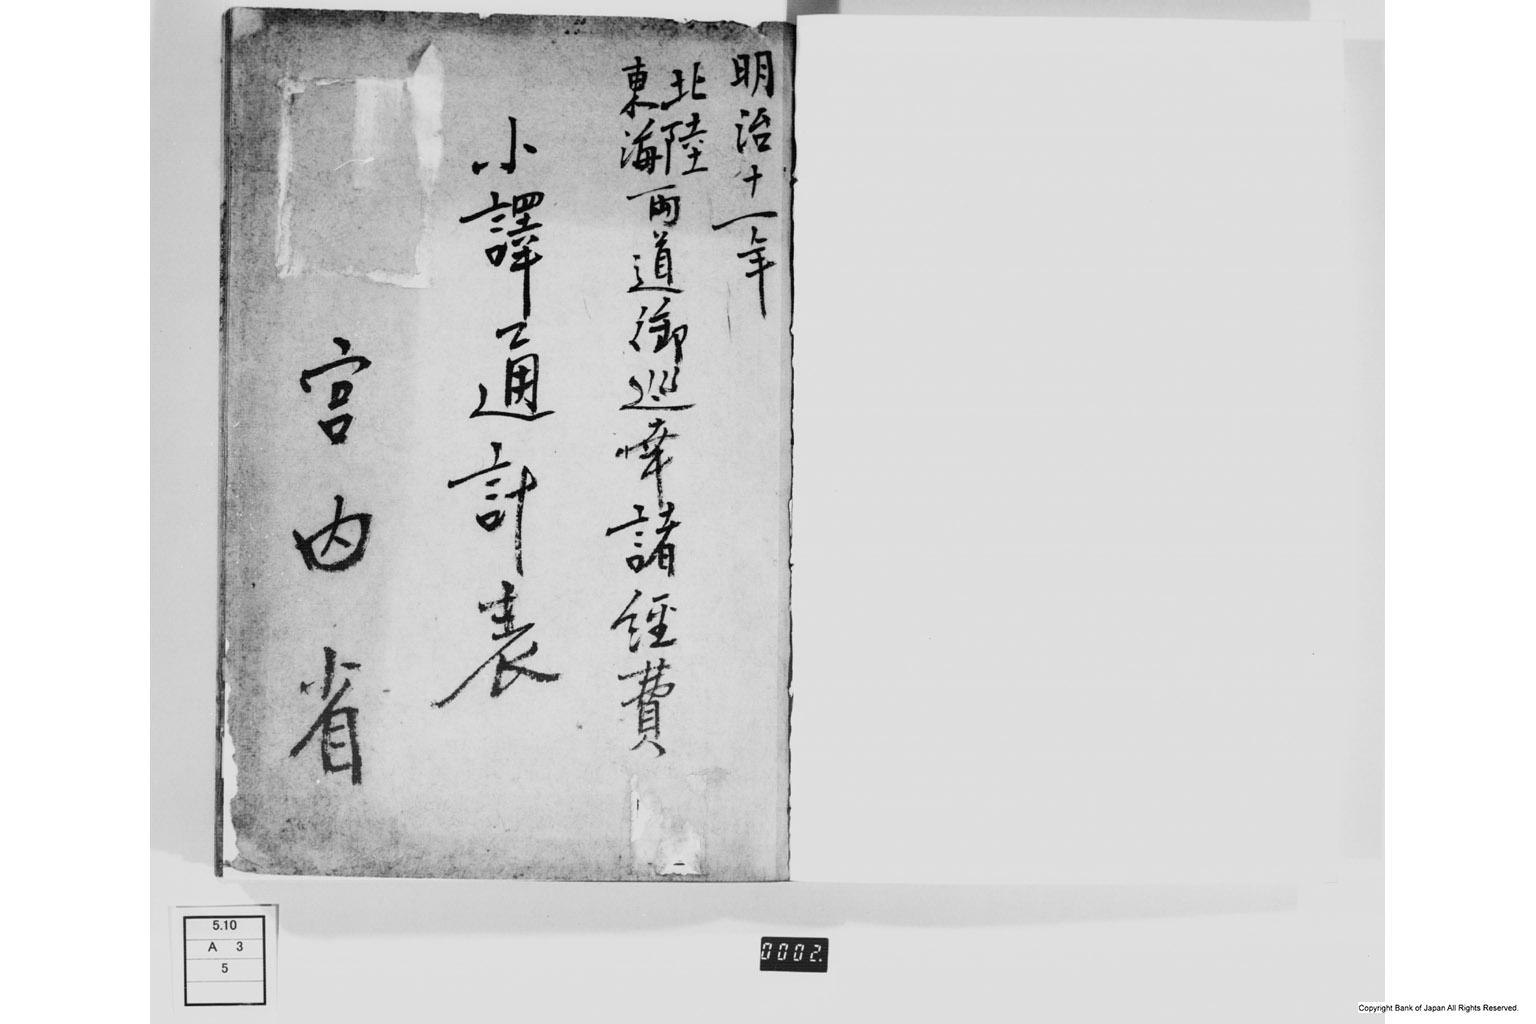 明治十一年
北陸
東海
両道御巡幸諸経費
小譯通計表
宮内省
5.10
A 3
5
0002.
Copyright Bank of Japan All Rights Reserved.